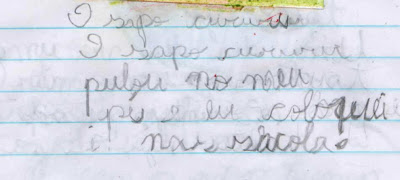 I sapo cururu
I sapo cururu
pulou no meu
pé e eu coloquei
nas sacola.